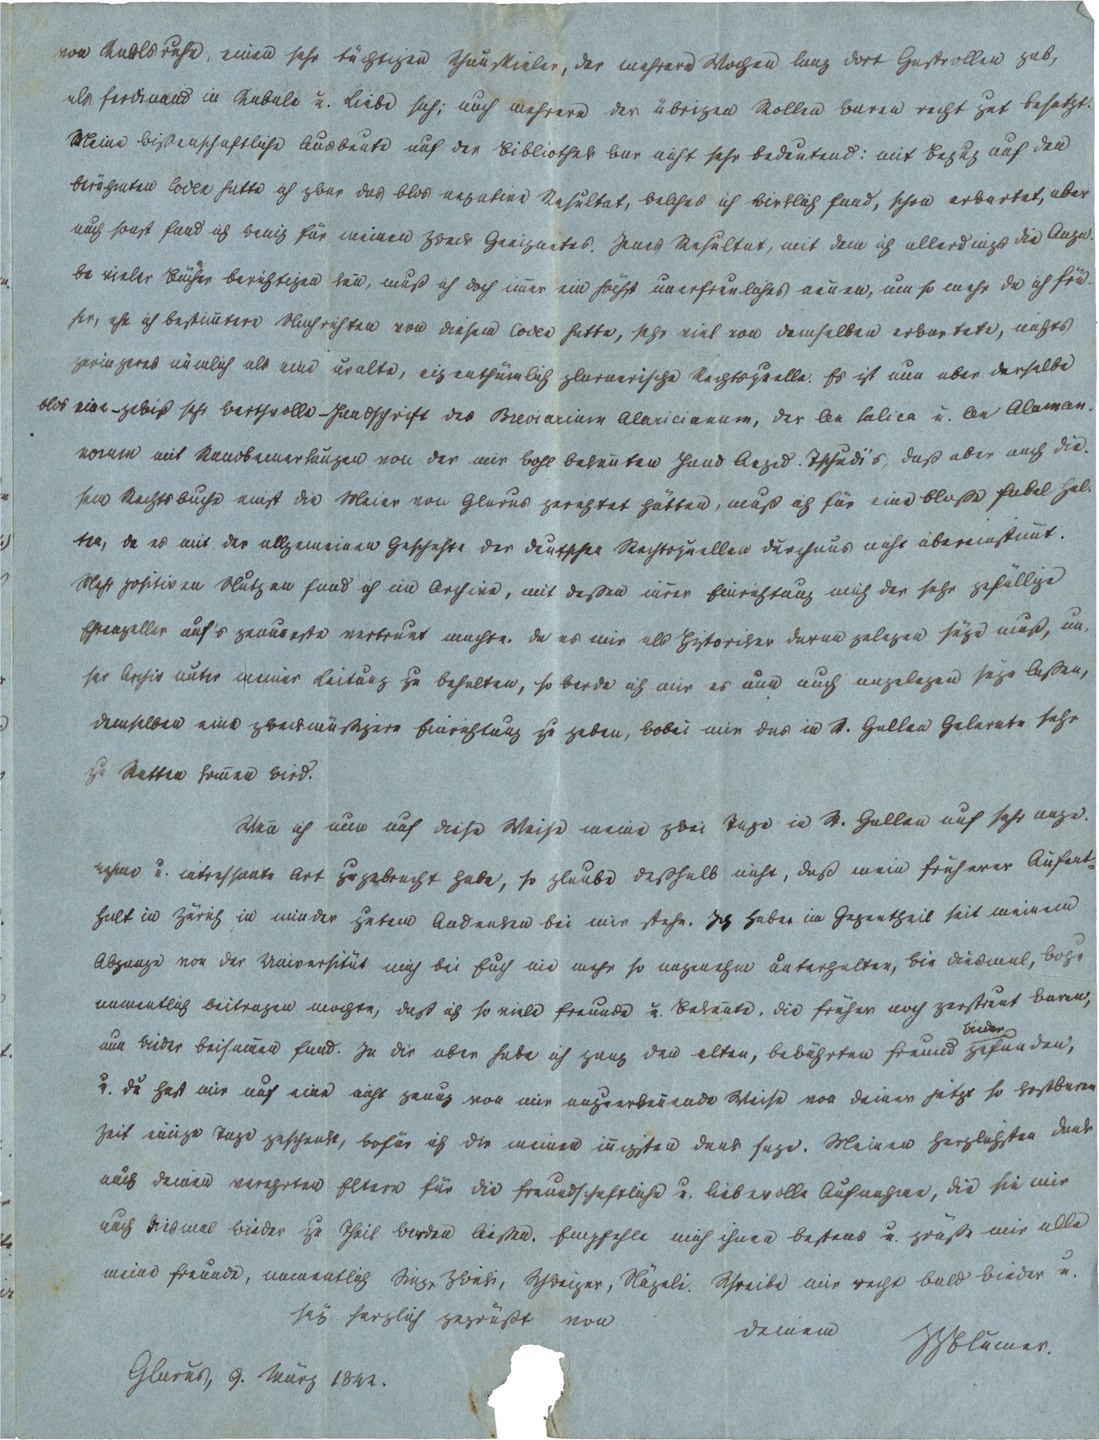 von Karlsruhe, einen sehr tüchtigen Schauspieler, der mehrere Wochen lang dort Gastrollen gab,
als Ferdinand in Kabale u. Liebe sah; auch mehrere der übrigen Rollen waren recht gut besetzt.
Meine wißenschaftliche Ausbeute auf der Bibliothek war nicht sehr bedeutend: mit Bezug auf den
berühmten Codex hatte ich zwar das blos negative Resultat, welches ich wirklich fand, schon erwartet, aber
auch sonst fand ich wenig für meinen Zweck Geeignetes. Jenes Resultat, mit dem ich allerdings die Anga-
be vieler Bücher berichtigen kañ, muß ich doch im̃er ein höchst unerfreuliches neñen, um so mehr da ich frü-
her, ehe ich bestim̃tere Nachrichten von diesem Codex hatte, sehr viel von demselben erwartete, nichts
geringeres nämlich als eine uralte, eigenthümlich glarnerische Rechtsquelle. Es ist nun aber derselbe
blos eine – gewiß sehr werthvolle – Handschrift des Breviarium Alaricianum, der lex salica u. lex Aleman-
norum mit Randbemerkungen von der mir wohl bekañten Hand Aegid. Tschudi's; daß aber nach die-
sem Rechtsbuche einst die Meier von Glarus gerichtet hätten, muß ich für eine bloße Fabel hal-
ten, da es mit der allgemeinen Geschichte der deutschen Rechtsquellen durchaus nicht übereinstim̃t.
Mehr positiven Nutzen fand ich im Archive, mit deßen iñrer Einrichtung mich der sehr gefällige
Ehrenzeller auf's genaueste vertraut machte. Da es mir als Historiker daran gelegen seyn muß, un-
ser Archiv unter meiner Leitung zu behalten, so werde ich mir es nun auch angelegen seyn laßen,
demselben eine zweckmäßigere Einrichtung zu geben, wobei mir das in St. Gallen Gelernte sehr
zu Statten kom̃en wird.
Weñ ich nun auf diese Weise meine zwei Tage in St. Gallen auf sehr ange-
nehme u. intressante Art zugebracht habe, so glaube deßhalb nicht, daß mein früherer Aufent-
halt in Zürich in minder gutem Andenken bei mir stehe. Ich habe im Gegentheil seit meinem
Abgange von der Universität mich bei Euch nie mehr so angenehm unterhalten, wie diesmal, wozu
namentlich beitragen mochte, daß ich so viele Freunde u. Bekañte, die früher noch zerstreut waren,
nun wieder beisam̃en fand. In dir aber habe ich ganz den alten, bewährten Freund wieder gefunden,
u. du hast mir auf eine nicht genug von mir anzuerkeñende Weise von deiner jetzt so kostbaren
Zeit einige Tage geschenkt, wofür ich dir meinen iñigsten Dank sage. Meinen herzlichsten Dank
auch deinen verehrten Eltern für die freundschaftliche u. liebevolle Aufnahme, die sie mir
auch diesmal wieder zu Theil werden ließen. Empfehle mich ihnen bestens u. grüße mir alle
meine Freunde, namentlich Zwicki, Schweizer, Nägeli. Schreibe mir recht bald wieder u.
sey herzlich gegrüßt von
deinem
JJBlumer.
Glarus, 9. März 1842.